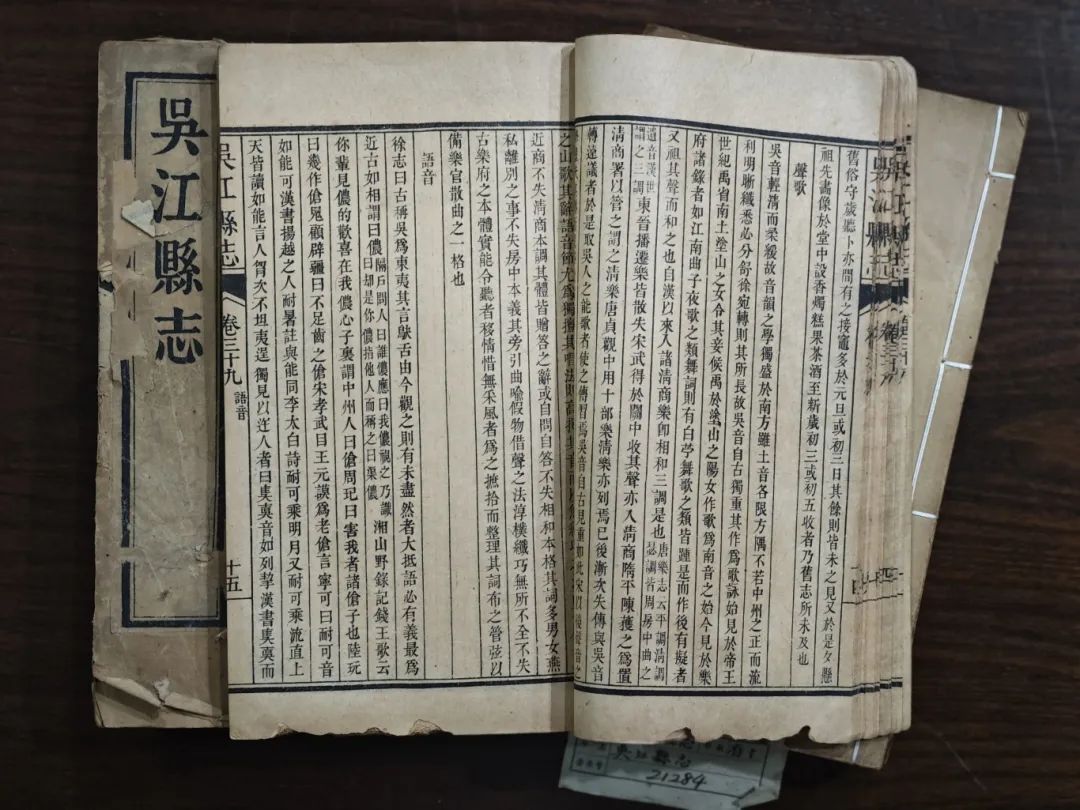 舊俗守歲聽卜亦間有之接竈多於元旦或初三日其餘則皆未之見又於是夕懸
祖先畵像於堂中設香燭糕果茶酒至新歲初三或初五收者乃舊志所未及也
聲歌
吳音輕清而柔緩故音韻之學獨盛於南方雖土音各限方隅不若中州之正而流
利明晰纖悉必分舒徐宛轉則其所長故吳音自古獨重其作爲歌詠始見於帝王
世紀禹省南土塗山之女令其妾候禹於塗山之陽女作歌爲南音之始今見於樂
府諸錄者如江南曲子夜歌之類舞詞則有白苧舞歌之類皆踵是而作後有擬者
又祖其聲而和之也自漢以來入諸清商樂卽相和三調是也唐樂志云平調清調
瑟調皆周房中曲之
遺音漢世
謂之三調東晉播遷樂皆散失宋武得於關中收其聲亦入清商隋平陳獲之爲置
清商署以管之謂之清樂唐貞觀中用十部樂清樂亦列焉已後漸次失傳與吳音
轉遠議者於是取吳人之能歌者使之傳習焉吳音自古見重如此宋以後聲音
之山歌其辭語音節尤爲獨擅其唱法則高揭其音
近商不失清商本調其體皆贈答之辭或自問自答不失相和本格其詞多男女燕
私離別之事不失房中本義其旁引曲喩假物借聲之法淳樸纖巧無所不全不失
古樂府之本體實能令聽者移情惜無采風者爲之摭拾而整理其詞布之管弦以
備樂官散曲之一格也
語音
徐志曰古稱吳爲東夷其言鴃舌由今觀之則有未盡然者大抵語必有義最爲
近古如相謂曰儂隔戶問人曰誰儂應曰我儂視之乃識
曰却是你儂指他人而稱之曰渠儂湘山野錄記錢王歌云
你輩見儂的歡喜在我儂心子裏謂中州人曰傖周玘曰害我者諸傖子也陸玩
曰幾作傖鬼顧辟疆曰不足齒之傖宋孝武目王元謨爲老傖言寧可曰耐可音
如能可漢書揚越之人耐暑註與能同李太白詩耐可乘明月又耐可乘流直上
天皆讀如能言人胷次不坦夷逞獨見以迕人者曰
音如列挈漢書
而
吳江縣志
卷三十九
語音
十五
吳江縣志
吳江縣志
21284